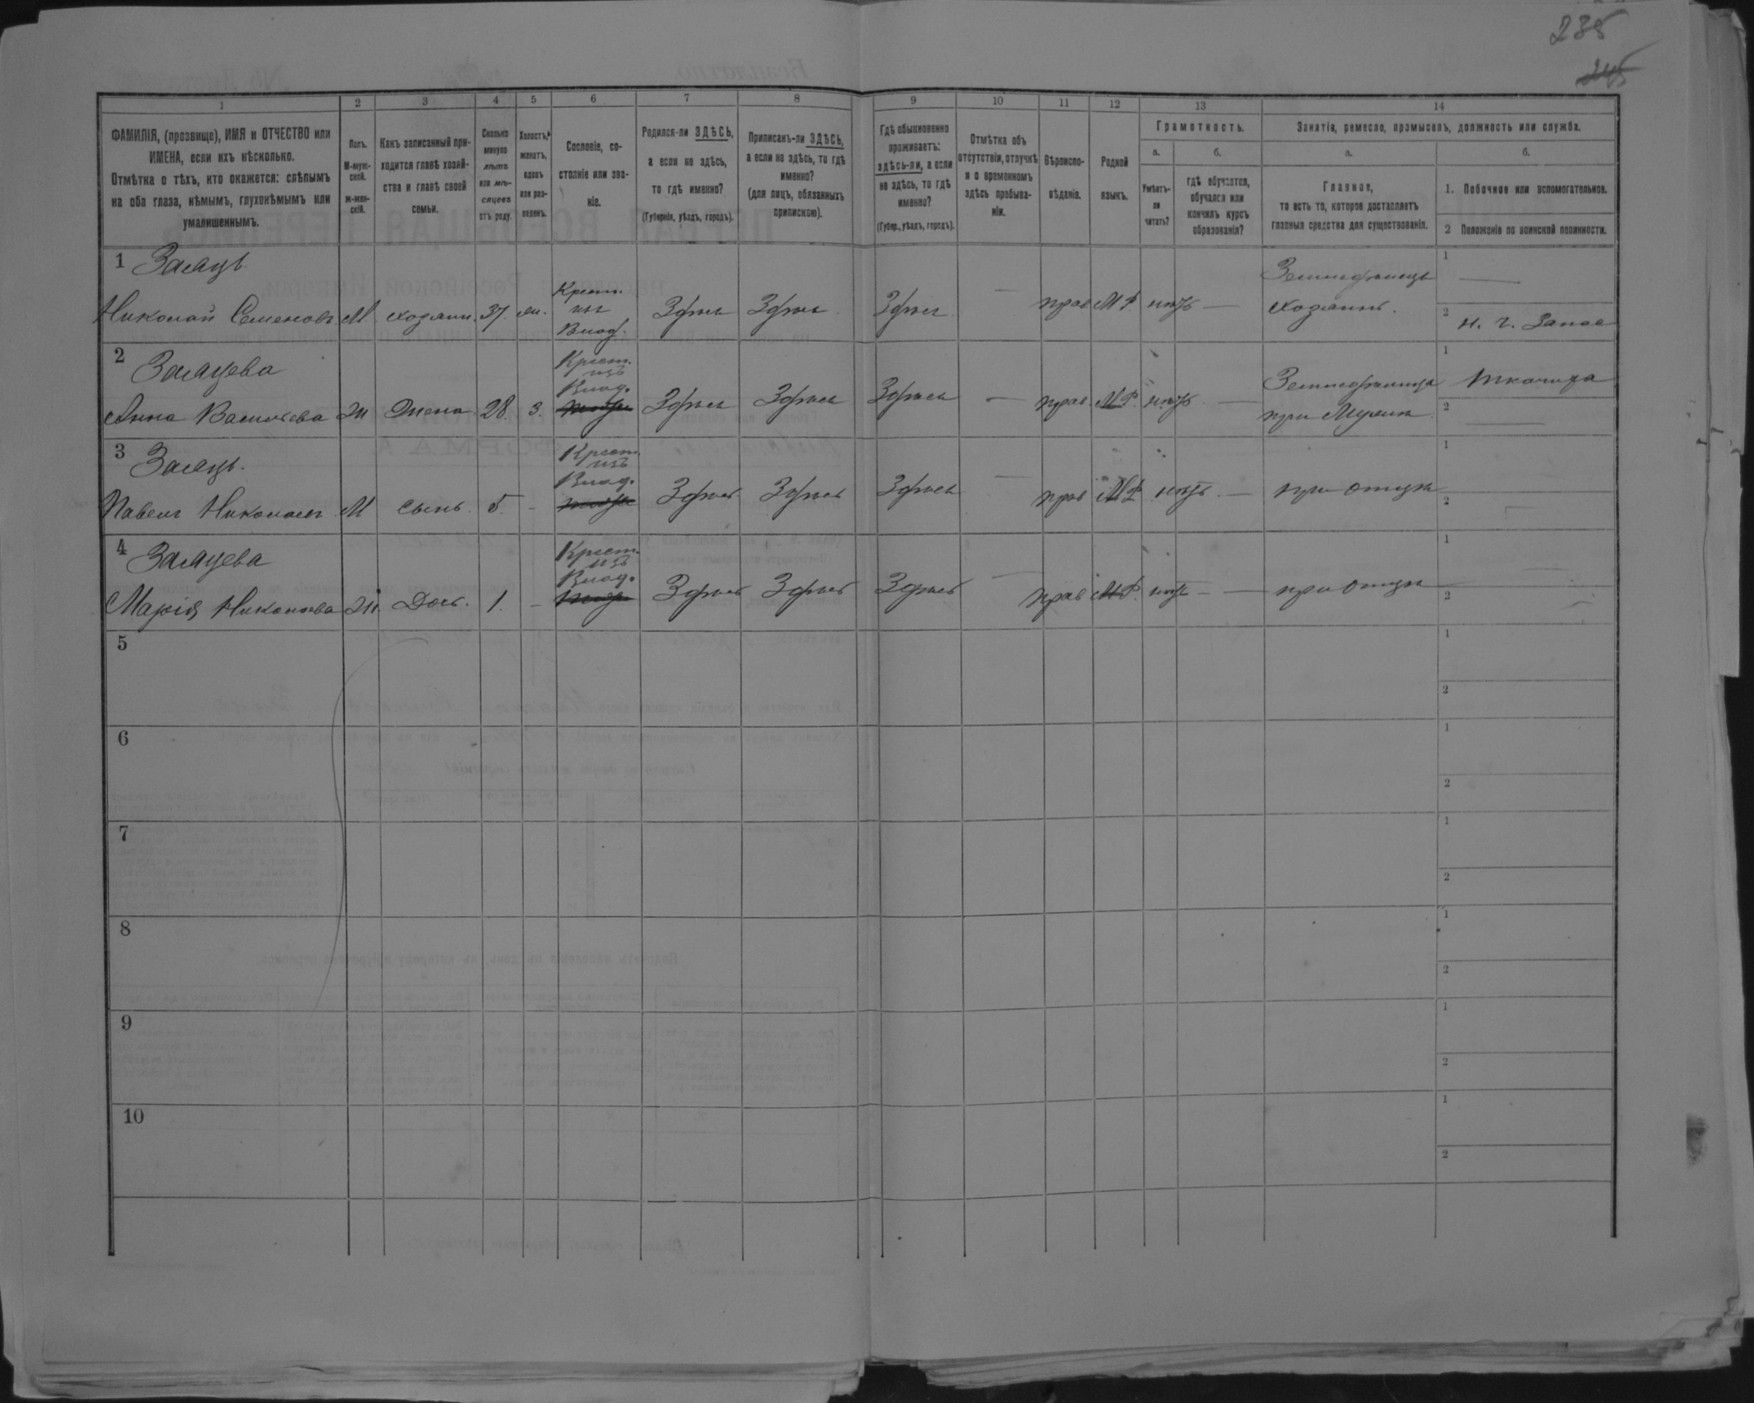 235
245
1 2 3 4 5 6 7 8 9 10 11 12 13 14
ФАМИЛІЯ, (прозвище), ИМЯ и ОТЧЕСТВО или ИМЕНА, если ихъ нѣсколько.
Отмѣтка о тѣхъ, кто окажется: слѣпымъ на оба глаза, нѣмымъ, глухонѣмымъ или умалишеннымъ.
Полъ.
М-муж-
ской.
ж-жен-
скій.
Какъ записанный при-
ходится главѣ хозяй-
ства и главѣ своей
семьи.
Сколько
минуло
лѣтъ
или мѣ-
сяцевъ
отъ роду.
Холостъ,
женатъ,
вдовъ
или раз-
веденъ.
Сословіе, со-
стояніе или зва-
ніе.
Родился-ли ЗДѢСЬ,
а если не здѣсь,
то гдѣ именно?
(Губернія, уѣздъ, городъ).
Приписанъ-ли ЗДѢСЬ,
а если не здѣсь, то гдѣ
именно?
(для лицъ, обязанныхъ
припискою).
Гдѣ обыкновенно
проживаетъ:
здѣсь-ли, а если
не здѣсь, то гдѣ
именно?
(Губер., уѣздъ, городъ).
Отмѣтка объ
отсутствіи, отлучкѣ
и о временномъ
здѣсь пребыва-
ніи.
Вѣроиспо-
вѣданіе.
Родной
языкъ.
Грамотность.
а.
Умѣетъ-
ли
читать?
б.
гдѣ обучается,
обучался или
кончилъ курсъ
образованія?
Занятіе, ремесло, промыселъ, должность или служба.
а.
Главное,
то есть то, которое доставляетъ
главныя средства для существованія.
б.
1. Побочное или вспомогательное.
2 Положеніе по воинской повинности.
1 Заяцъ
Николай Семеновъ М хозяин. 37 жн. Крест. изъ Влад. Здѣсь Здѣсь Здѣсь — прав М.Р. нѣтъ — Земледѣлецъ хозяинъ. 1 — 2 н. ч. Запас
2 Заяцева
Анна Василева Ж Жена 28. з. Крест. изъ Влад. Здѣсь Здѣсь Здѣсь — прав М.Р. нѣтъ — Земледѣлица при Мужѣ 1 ткачиха 2 —
3 Заяцъ.
Павелъ Николаев М сынъ. 5. - Крест. изъ Влад. Здѣсь Здѣсь Здѣсь — прав М.Р. нѣтъ. — при отцѣ 1 2
4 Заяцева
Марія Николаева Ж. Доч. 1. - Крест. изъ Влад. Здѣсь Здѣсь Здѣсь — прав М.Р. нѣтъ — — при отцѣ 1 2
5 1 2
6 1 2
7 1 2
8 1 2
9 1 2
10 1 2